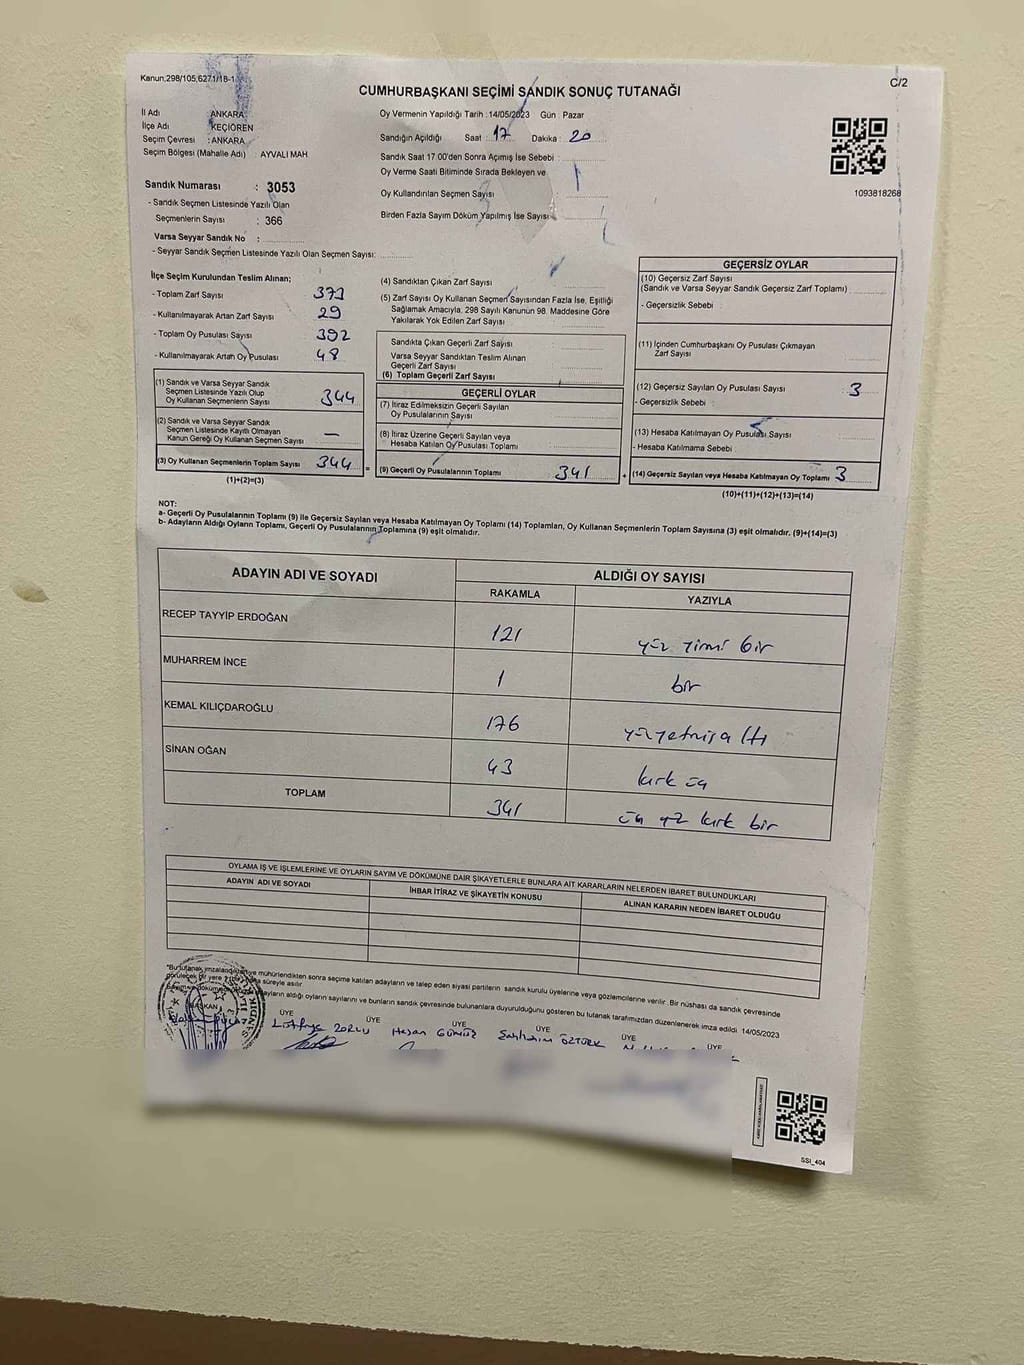 Kanun;298/105,627.1/18-1
C/2
CUMHURBAŞKANI SEÇİMİ SANDIK SONUÇ TUTANAĞI
İl Adı ANKARA
İlçe Adı KEÇİÖREN
Seçim Çevresi : ANKARA
Seçim Bölgesi (Mahalle Adı) : AYVALI MAH
Sandık Numarası : 3053
- Sandık Seçmen Listesinde Yazılı Olan
Seçmenlerin Sayısı : 366
Varsa Seyyar Sandık No :
- Seyyar Sandık Seçmen Listesinde Yazılı Olan Seçmen Sayısı:
Oy Vermenin Yapıldığı Tarih :14/05/2023 Gün : Pazar
Sandığın Açıldığı Saat : 17 Dakika : 20
Sandık Saat 17.00'den Sonra Açımış İse Sebebi :
Oy Verme Saati Bitiminde Sırada Bekleyen ve
Oy Kullandırılan Seçmen Sayısı
Birden Fazla Sayım Döküm Yapılmış İse Sayısı
1093818268
İlçe Seçim Kurulundan Teslim Alınan;
- Toplam Zarf Sayısı 373
- Kullanılmayarak Artan Zarf Sayısı 29
- Toplam Oy Pusulası Sayısı 392
- Kullanılmayarak Artan Oy Pusulası 48
(1) Sandık ve Varsa Seyyar Sandık
Seçmen Listesinde Yazılı Olup
Oy Kullanan Seçmenlerin Sayısı 344
(2) Sandık ve Varsa Seyyar Sandık
Seçmen Listesinde Kayıtlı Olmayan
Kanun Gereği Oy Kullanan Seçmen Sayısı —
(3) Oy Kullanan Seçmenlerin Toplam Sayısı 344 =
(1)+(2)=(3)
(4) Sandıktan Çıkan Zarf Sayısı
(5) Zarf Sayısı Oy Kullanan Seçmen Sayısından Fazla İse, Eşitliği
Sağlamak Amacıyla, 298 Sayılı Kanunun 98. Maddesine Göre
Yakılarak Yok Edilen Zarf Sayısı
Sandıkta Çıkan Geçerli Zarf Sayısı
Varsa Seyyar Sandıktan Teslim Alınan
Geçerli Zarf Sayısı
(6) Toplam Geçerli Zarf Sayısı
GEÇERLİ OYLAR
(7) İtiraz Edilmeksizin Geçerli Sayılan
Oy Pusulalarının Sayısı
(8) İtiraz Üzerine Geçerli Sayılan veya
Hesaba Katılan Oy Pusulası Toplamı
(9) Geçerli Oy Pusulalarının Toplamı 341 +
GEÇERSİZ OYLAR
(10) Geçersiz Zarf Sayısı
(Sandık ve Varsa Seyyar Sandık Geçersiz Zarf Toplamı)
- Geçersizlik Sebebi :
(11) İçinden Cumhurbaşkanı Oy Pusulası Çıkmayan
Zarf Sayısı
(12) Geçersiz Sayılan Oy Pusulası Sayısı 3
- Geçersizlik Sebebi :
(13) Hesaba Katılmayan Oy Pusulası Sayısı
- Hesaba Katılmama Sebebi :
(14) Geçersiz Sayılan veya Hesaba Katılmayan Oy Toplamı 3
(10)+(11)+(12)+(13)=(14)
NOT:
a- Geçerli Oy Pusulalarının Toplamı (9) ile Geçersiz Sayılan veya Hesaba Katılmayan Oy Toplamı (14) Toplamları, Oy Kullanan Seçmenlerin Toplam Sayısına (3) eşit olmalıdır. (9)+(14)=(3)
b- Adayların Aldığı Oyların Toplamı, Geçerli Oy Pusulalarının Toplamına (9) eşit olmalıdır.
ADAYIN ADI VE SOYADI ALDIĞI OY SAYISI
RAKAMLA YAZIYLA
RECEP TAYYİP ERDOĞAN 121 yüz yirmi bir
MUHARREM İNCE 1 bir
KEMAL KILIÇDAROĞLU 176 yüzyetmişaltı
SİNAN OĞAN 43 kırk üç
TOPLAM 341 üç yüz kırk bir
OYLAMA İŞ VE İŞLEMLERİNE VE OYLARIN SAYIM VE DÖKÜMÜNE DAİR ŞİKAYETLERLE BUNLARA AİT KARARLARIN NELERDEN İBARET BULUNDUKLARI
ADAYIN ADI VE SOYADI İHBAR İTİRAZ VE ŞİKAYETİN KONUSU ALINAN KARARIN NEDEN İBARET OLDUĞU
"Bu tutanak imzalandıktan ve mühürlendikten sonra seçime katılan adayların ve talep eden siyasi partilerin sandık kurulu üyelerine veya gözlemcilerine verilir. Bir nüshası da sandık çevresinde
görülecek bir yere süreyle asılır.
adayların aldığı oyların sayılarını ve bunların sandık çevresinde bulunanlara duyurulduğunu gösteren bu tutanak tarafımızdan düzenlenerek imza edildi. 14/05/2023
BAŞKAN ÜYE ÜYE ÜYE ÜYE ÜYE
Lütfiye ZORLU Hasan GÜMÜŞ ÖZTÜRK
SSI_404